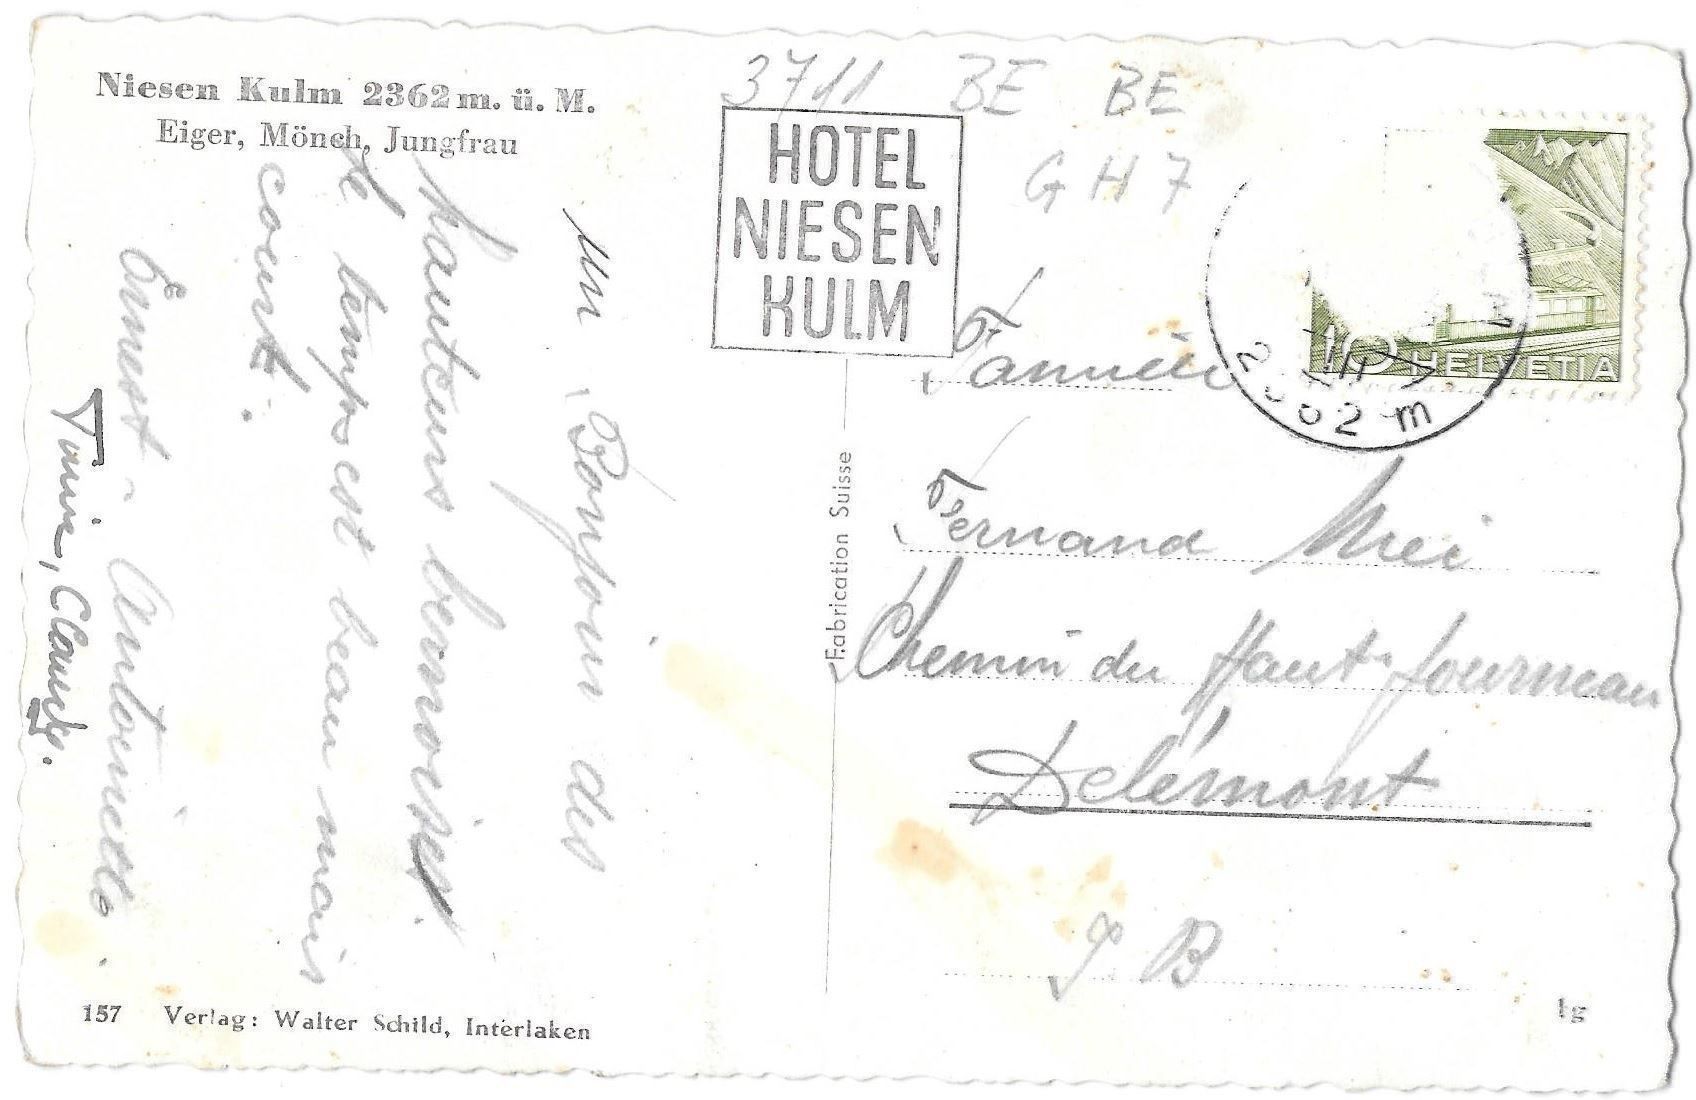 Niesen Kulm 2362 m. ü. M.
Eiger, Mönch, Jungfrau
3711 BE BE
G H 7
HOTEL
NIESEN
KULM
10 HELVETIA
2362 m
un Bonjour des
hauteurs bernoises
le temps est beau mais
court.
Ernest - Antoinette
Fabrication Suisse
Fernand
Chemin du Haut-fourneau
Delémont
J B
157 Verlag: Walter Schild, Interlaken
lg